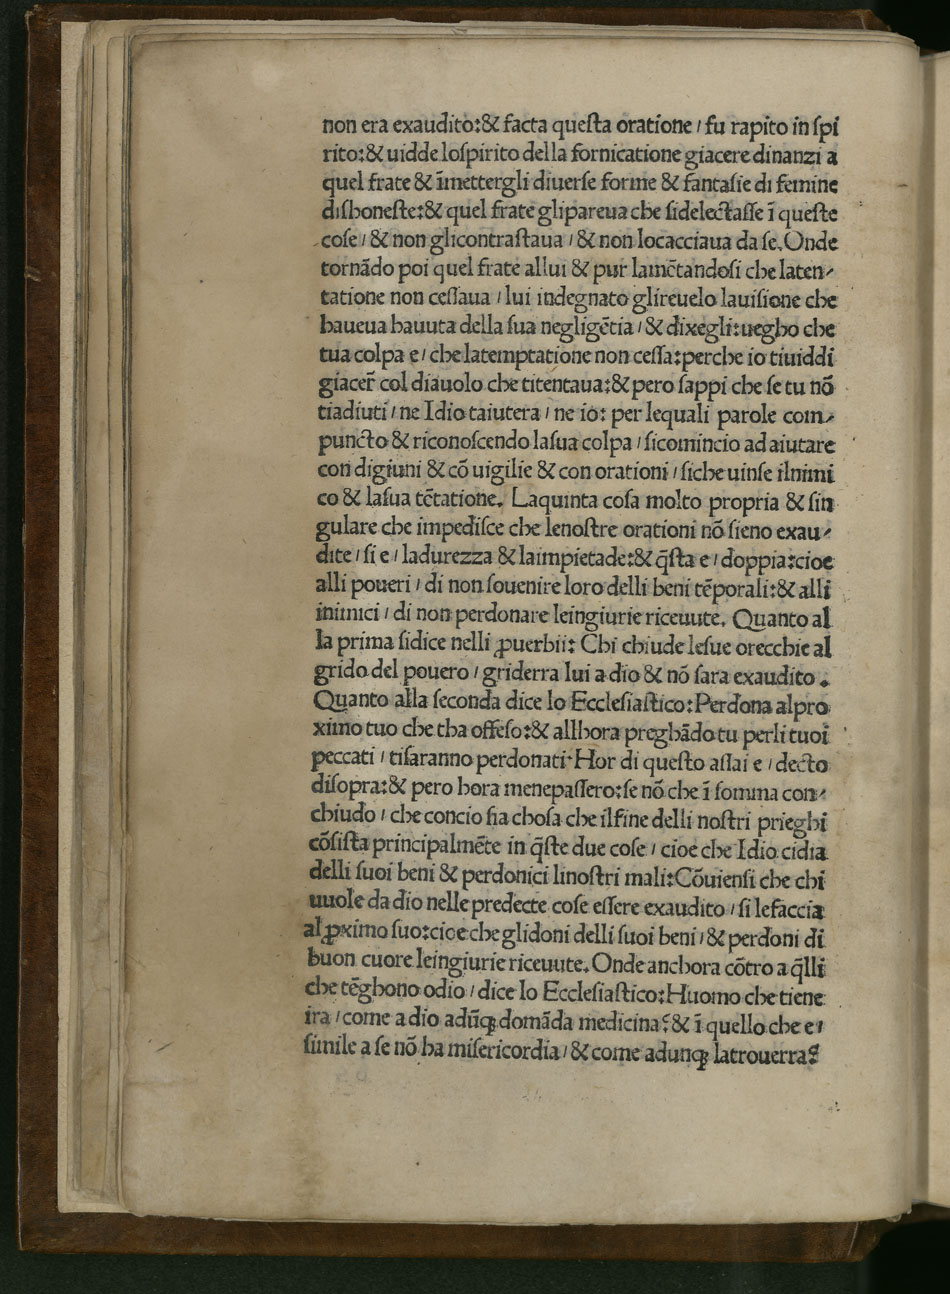 non era exaudito:& facta queſta oratione / fu rapito in ſpi
rito:& uidde loſpirito della fornicatione giacere dinanzi a
quel frate & īmettergli diuerſe forme & fantaſie di femine
diſhoneſte:& quel frate glipareua che ſidelectaſſe ī queſte
coſe / & non glicontraſtaua / & non locacciaua da ſe. Onde
tornādo poi quel frate allui & pur lamētandoſi che laten-
tatione non ceſſaua / lui indegnato glireuelo lauiſione che
haueua hauuta della ſua negligētia / & dixegli:uegho che
tua colpa e / che latemptatione non ceſſa:perche io tiuiddi
giacer̄ col diauolo che titentaua:& pero ſappi che ſe tu nō
tiadiuti / ne Idio taiutera / ne io: per lequali parole com-
puncto & riconoſcendo laſua colpa / ſicomincio ad aiutare
con digiuni & cō uigilie & con orationi / ſiche uinſe ilnimi
co & laſua tētatione. Laquinta coſa molto propria & ſin
gulare che impediſce che lenoſtre orationi nō ſieno exau-
dite / ſi e / ladurezza & laimpietade:& q̄ſta e / doppia:cioe
alli poueri / di non ſouenire loro delli beni tēporali:& alli
inimici / di non perdonare leingiurie riceuute. Quanto al
la prima ſidice nelli ꝓuerbii: Chi chiude leſue orecchie al
grido del pouero / griderra lui a dio & nō ſara exaudito.
Quanto alla ſeconda dice lo Eccleſiaſtico:Perdona alpro
ximo tuo che tha offeſo:& allhora preghādo tu perli tuoi
peccati / tiſaranno perdonati·Hor di queſto aſſai e / decto
diſopra:& pero hora menepaſſero:ſe nō che ī ſomma con-
chiudo / che concio ſia choſa che ilfine delli noſtri prieghi
cōſiſta principalmēte in q̄ſte due coſe / cioe che Idio cidia
delli ſuoi beni & perdonici linoſtri mali:Cōuienſi che chi
uuole da dio nelle predecte coſe eſſere exaudito / ſi lefaccia
al ꝓximo ſuo:cioe che glidoni delli ſuoi beni / & perdoni di
buon cuore leingiurie riceuute. Onde anchora cōtro a q̄lli
che tēghono odio / dice lo Eccleſiaſtico:Huomo che tiene
ira / come a dio adūqꝫ domāda medicina? & ī quello che e /
ſimile a ſe nō ha miſericordia / & come adunqꝫ latrouerra?